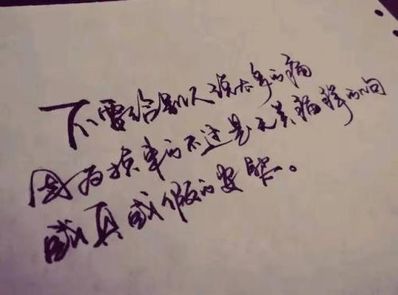 不要给别人太多的痛
因为换来的不过是无关痛痒的问
或真或假的安慰。